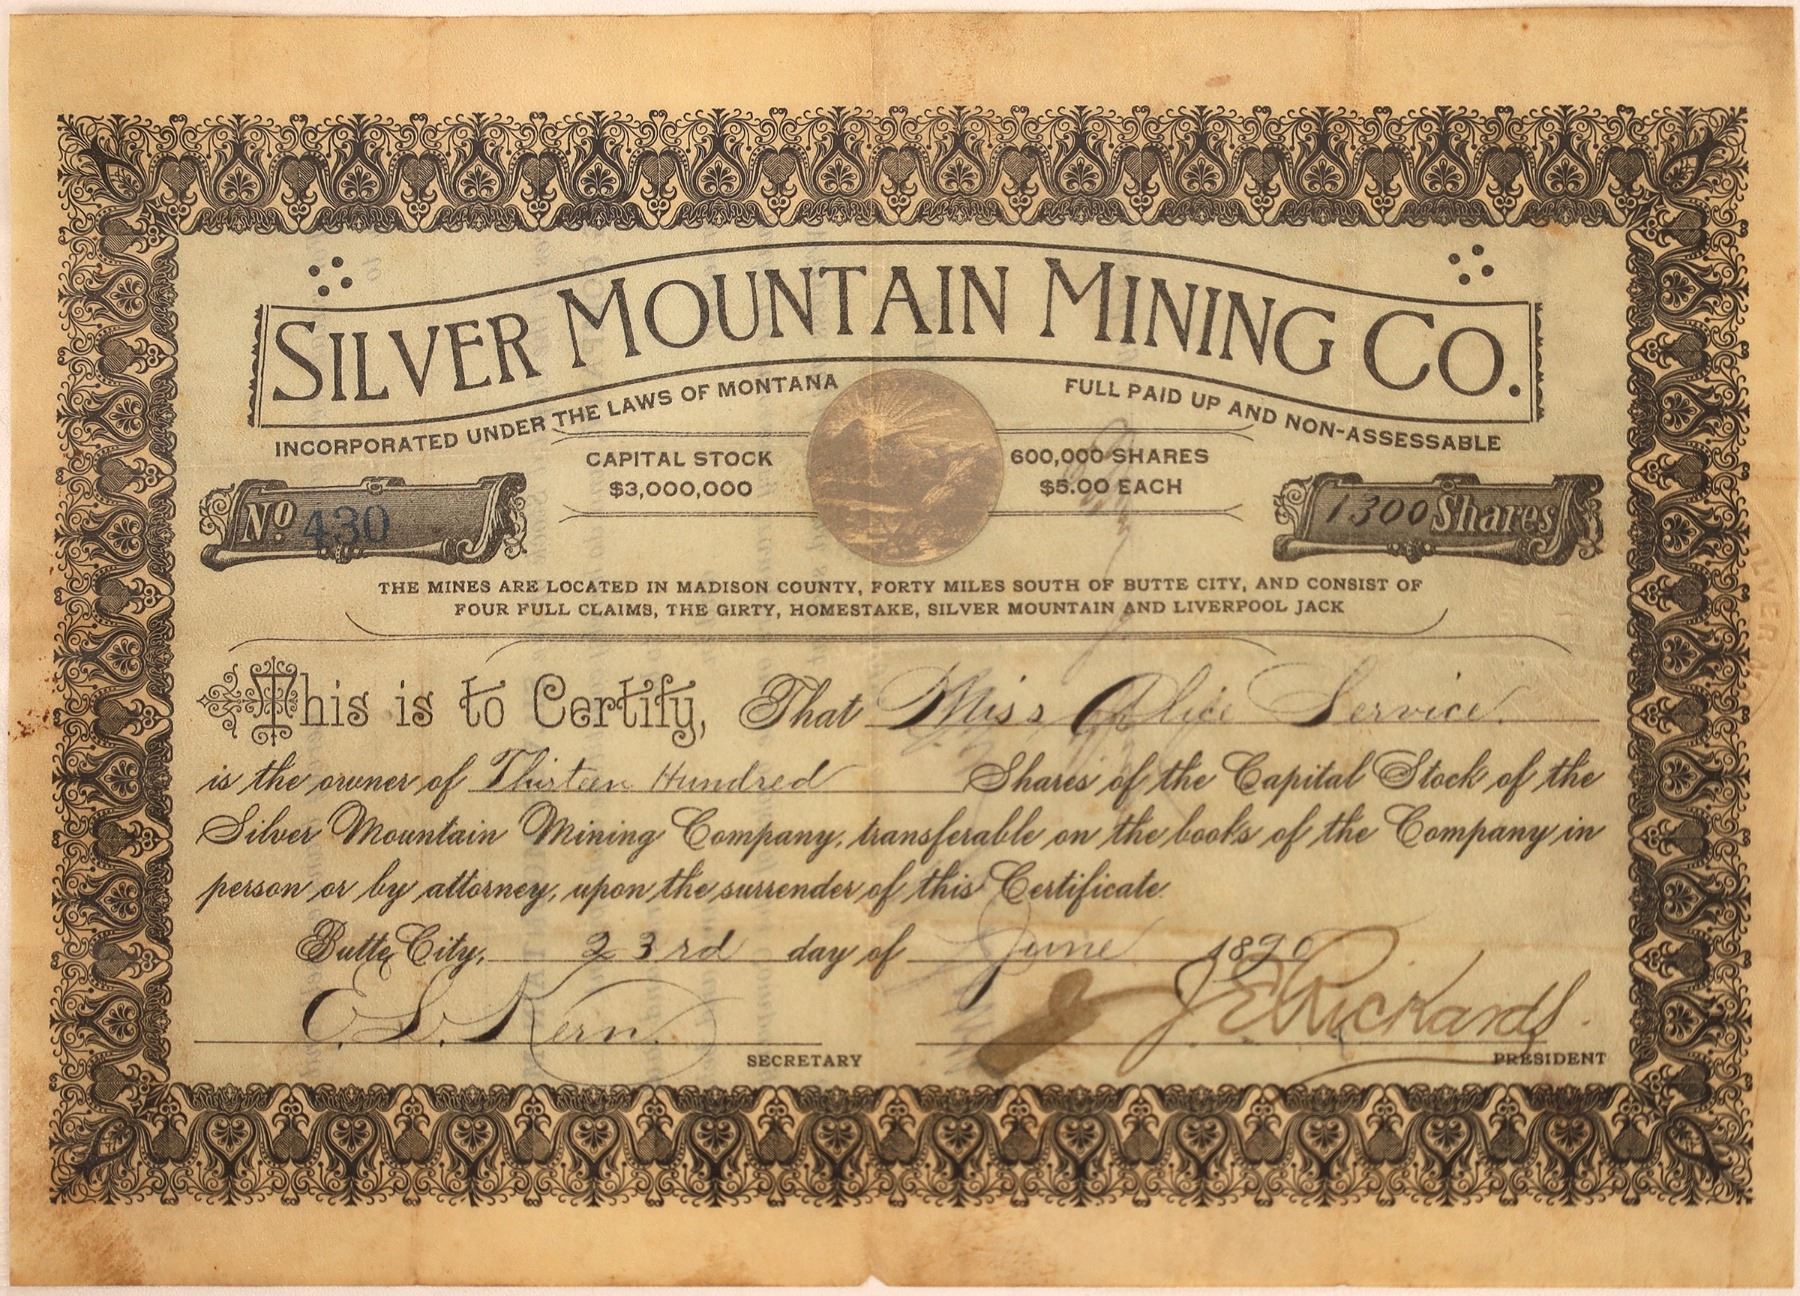 SILVER MOUNTAIN MINING CO.
INCORPORATED UNDER THE LAWS OF MONTANA
FULL PAID UP AND NON-ASSESSABLE
CAPITAL STOCK
$3,000,000
600,000 SHARES
$5.00 EACH
No. 430
1300 Shares
THE MINES ARE LOCATED IN MADISON COUNTY, FORTY MILES SOUTH OF BUTTE CITY, AND CONSIST OF
FOUR FULL CLAIMS, THE GIRTY, HOMESTAKE, SILVER MOUNTAIN AND LIVERPOOL JACK
This is to Certify, That Miss Alice Service.
is the owner of Thirteen Hundred Shares of the Capital Stock of the
Silver Mountain Mining Company, transferable on the books of the Company in
person or by attorney, upon the surrender of this Certificate.
Butte City, 23rd day of June 1890
E. L. Kern. J E Rickards.
SECRETARY PRESIDENT